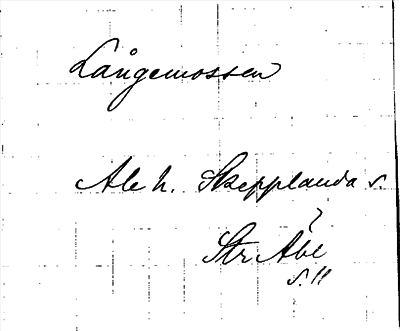 Långemossen
Ale h. Skepplanda s.
?
Str Abl
s. 11